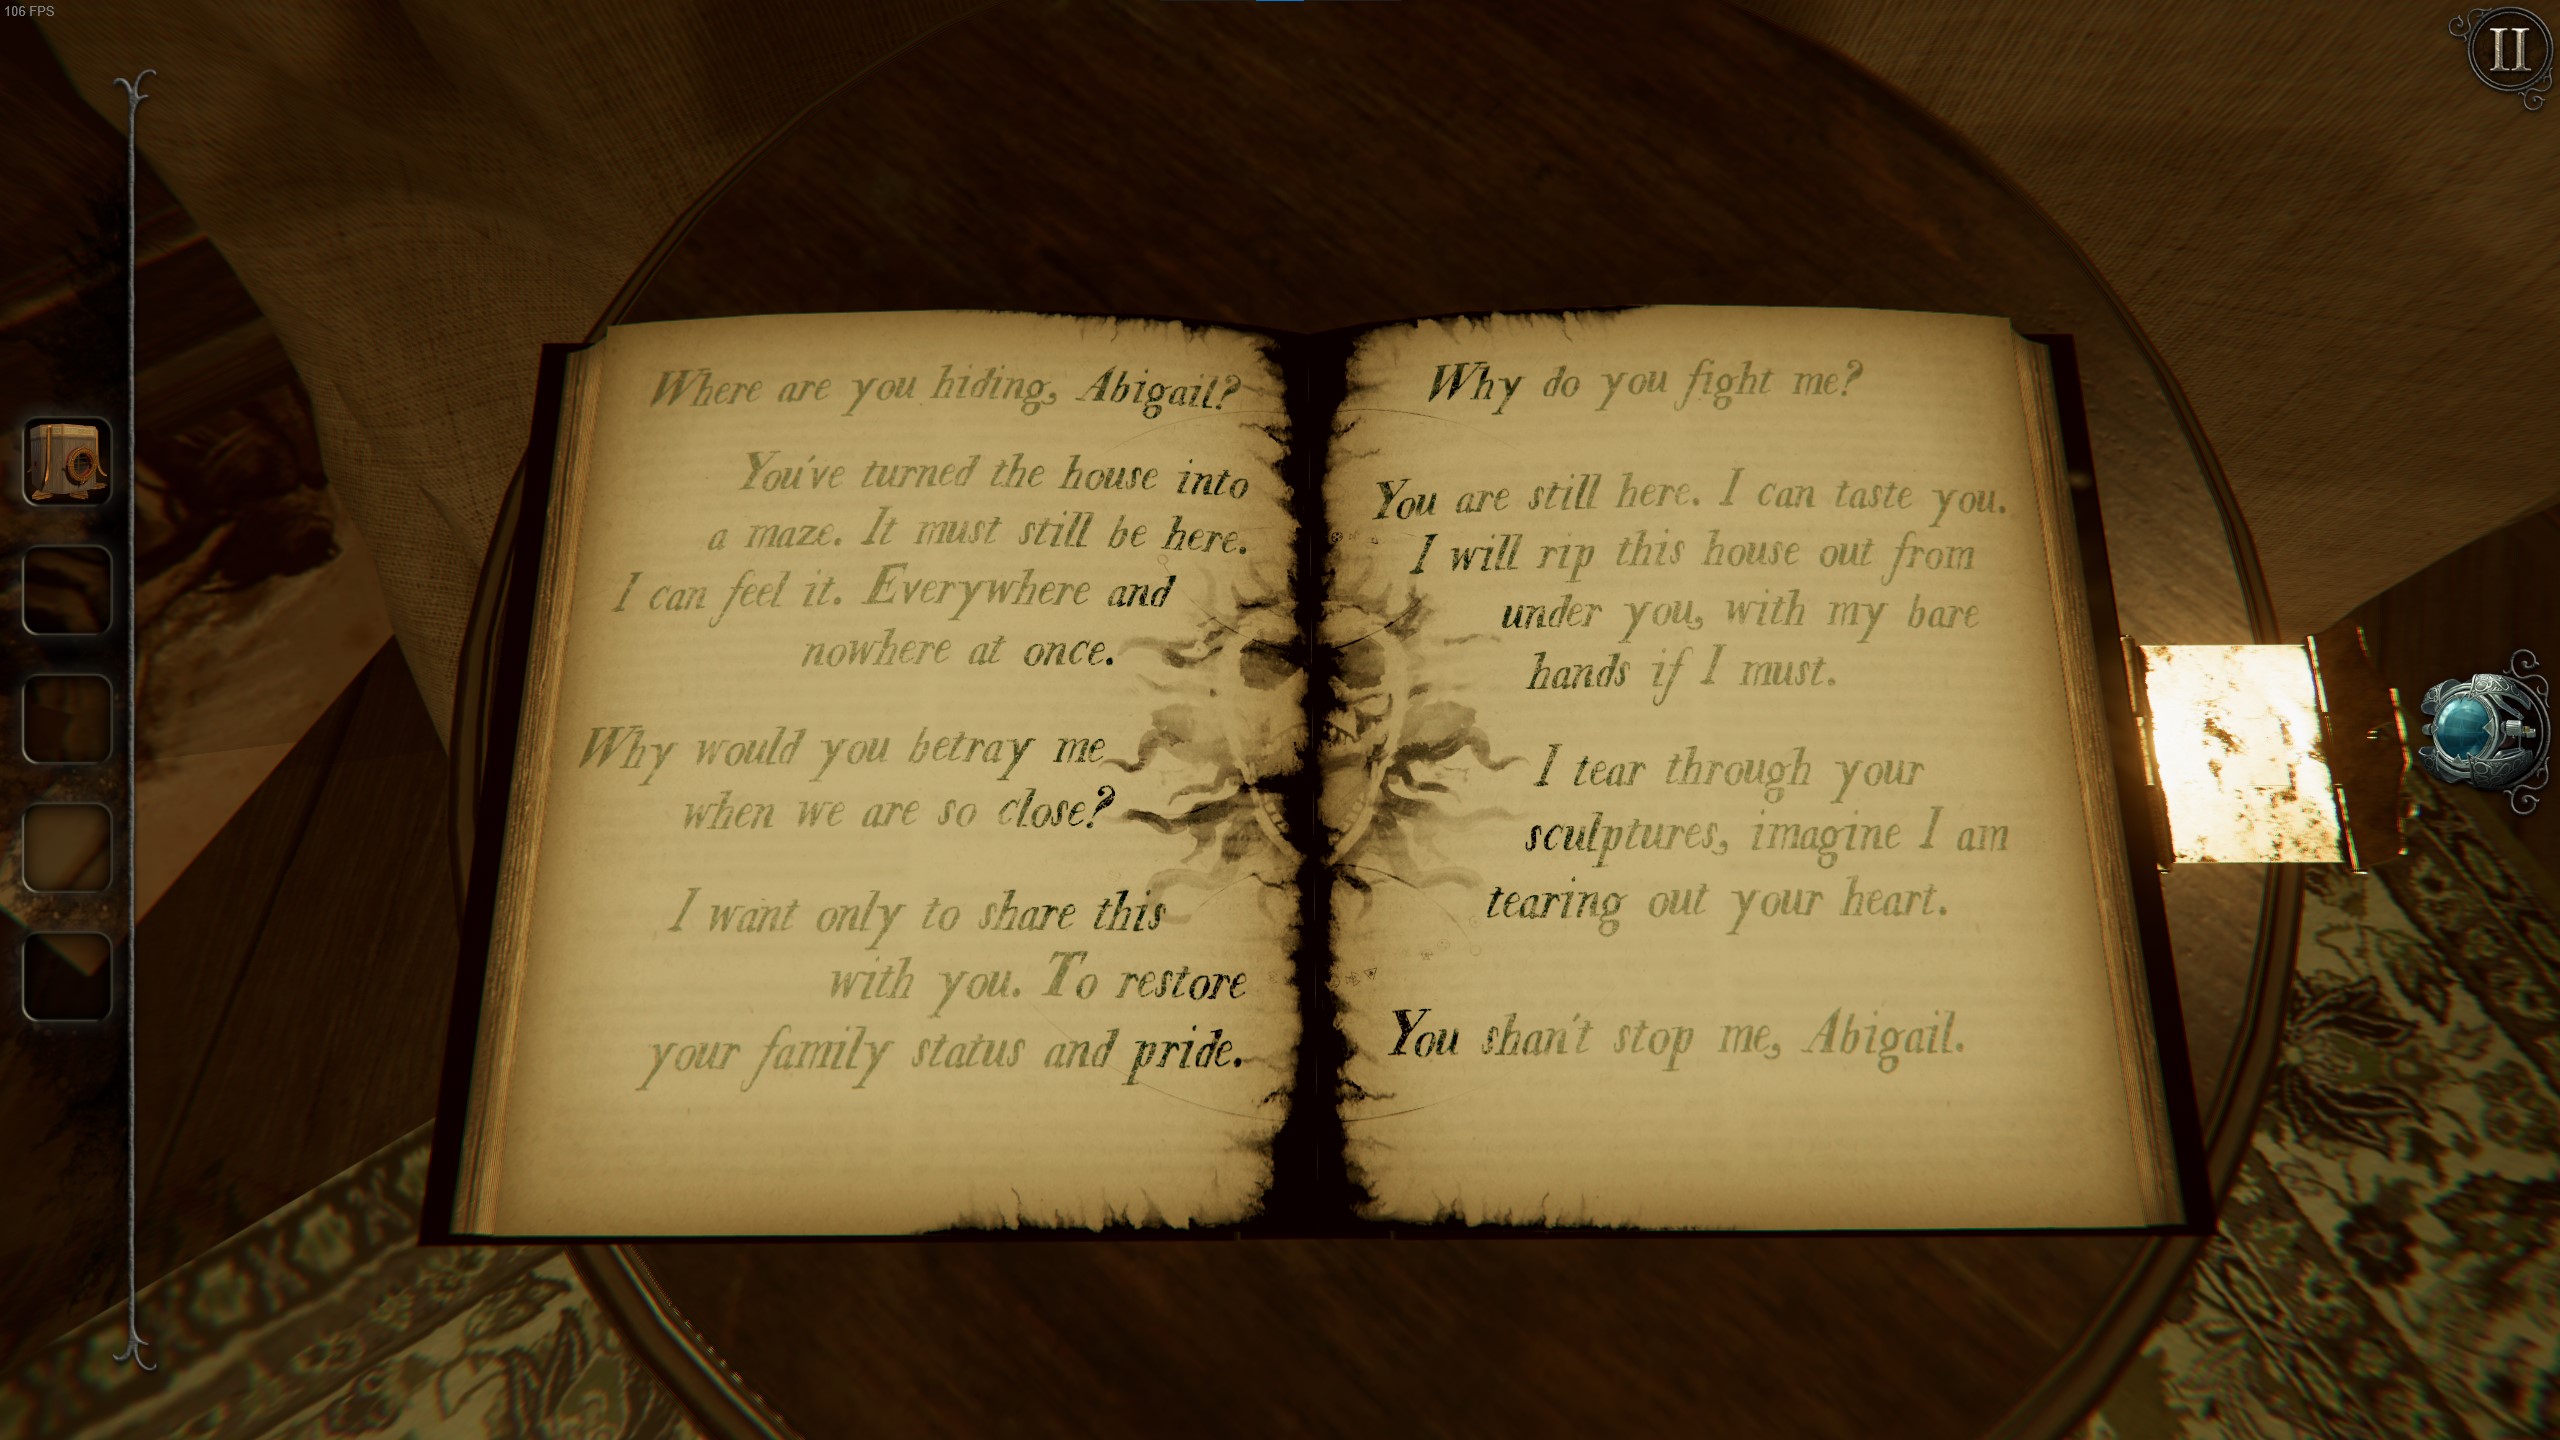 106 FPS
II
Where are you hiding, Abigail?
You've turned the house into
a maze. It must still be here.
I can feel it. Everywhere and
nowhere at once.
Why would you betray me
when we are so close?
I want only to share this
with you. To restore
your family status and pride.
Why do you fight me?
You are still here. I can taste you.
I will rip this house out from
under you, with my bare
hands if I must.
I tear through your
sculptures, imagine I am
tearing out your heart.
You shan't stop me, Abigail.